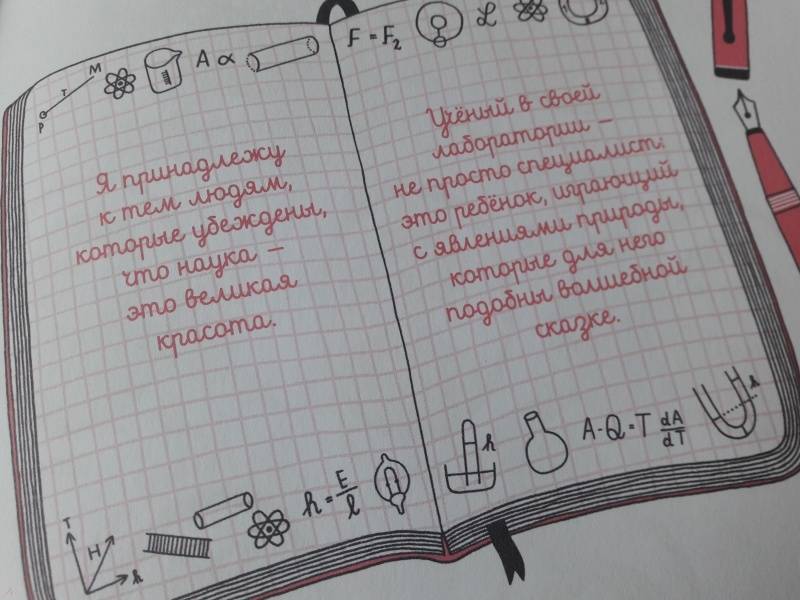 M
T
P
A α
Я принадлежу
к тем людям,
которые убеждены,
что наука –
это великая
красота.
T
H
h
h = E/l
F = F₂
L
Учёный в своей
лаборатории –
не просто специалист:
это ребёнок, играющий
с явлениями природы,
которые для него
подобны волшебной
сказке.
h
A-Q=T dA/dT
h